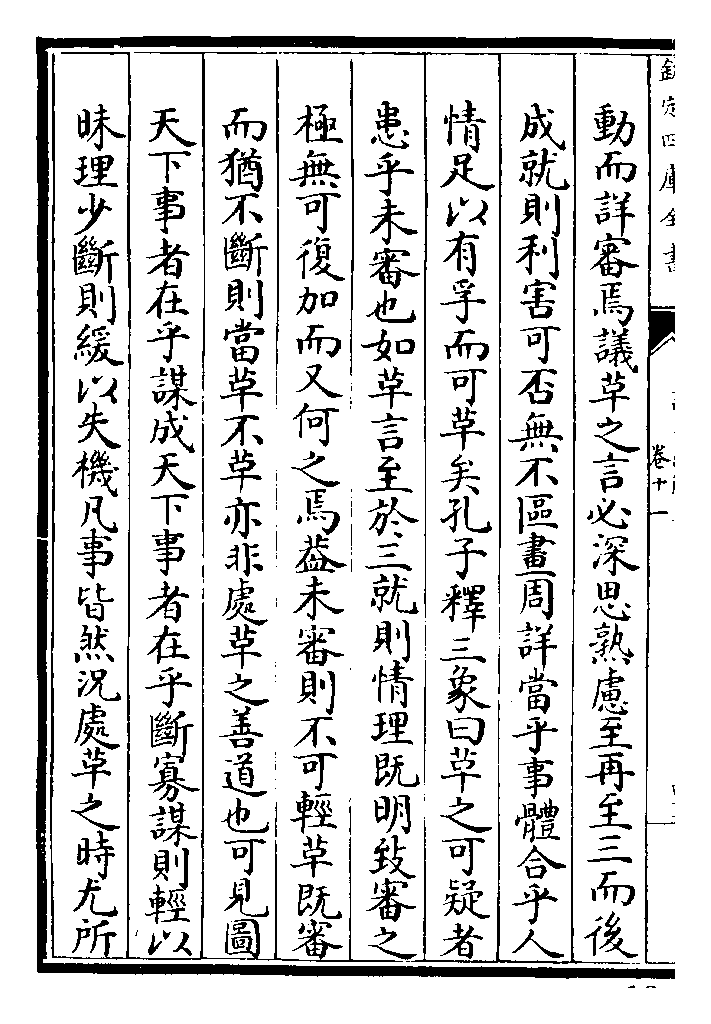 欽定四庫全書
卷十一
動而詳審焉議革之言必深思熟慮至再至三而後
成就則利害可否無不區畫周詳當乎事體合乎人
情足以有孚而可革矣孔子釋三象曰革之可疑者
患乎未審也如革言至於三就則情理既明致審之
極無可復加而又何之焉葢未審則不可輕革既審
而猶不斷則當革不革亦非處革之善道也可見圖
天下事者在乎謀成天下事者在乎斷寡謀則輕以
昧理少斷則緩以失機凡事皆然況處革之時尤所